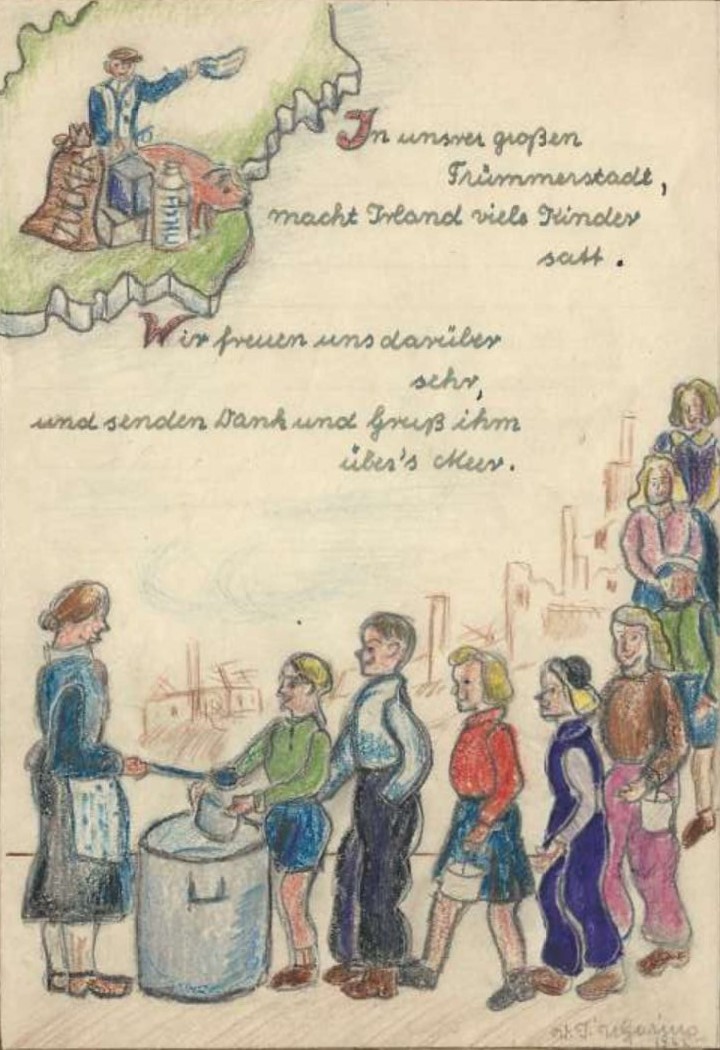 ZUCKER
In unsrer großen
Trümmerstadt,
macht Irland viele Kinder
satt.
Wir freuen uns darüber
sehr,
und senden Dank und Gruß ihm
über's Meer.